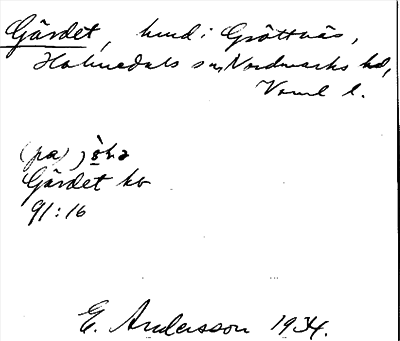 Gärdet, hmd i Gröttnäs,
Holmedals sn, Nordmarks hd,
Värml l.
(pa)
Gärdet hv
91:16
E. Andersson 1934.